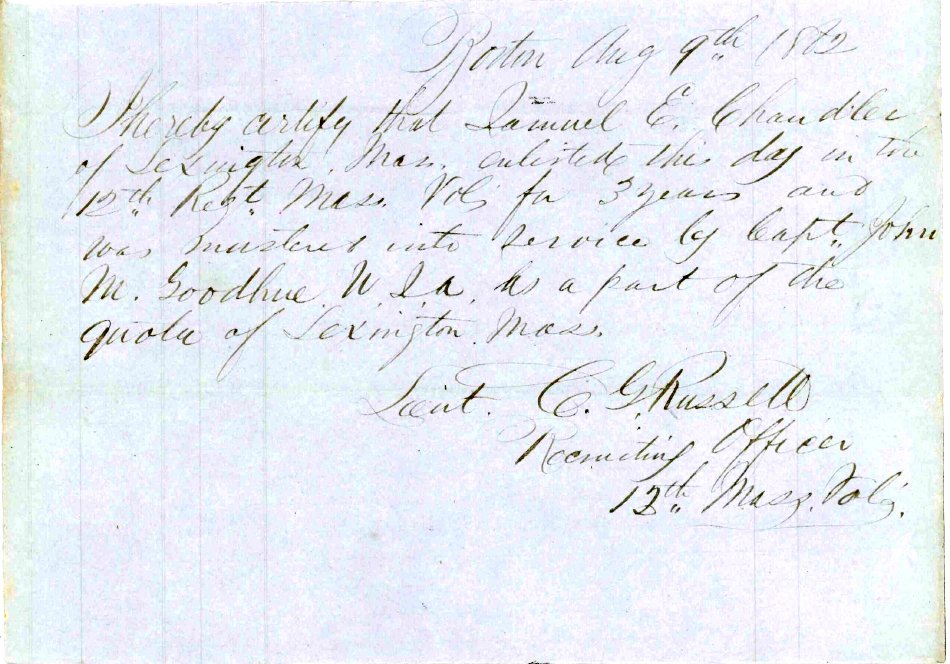 Boston Aug 9th 1862
I hereby certify that Samuel E. Chandler
of Lexington, Mass. enlisted this day in the
12th Regt. Mass. Vols for 3 years and
was mustered into service by Capt. John
M. Goodhue U.S.A. As a part of the
quota of Lexington Mass.
Lieut. C. G. Russell
Recruiting Officer
12th Mass. Vols.